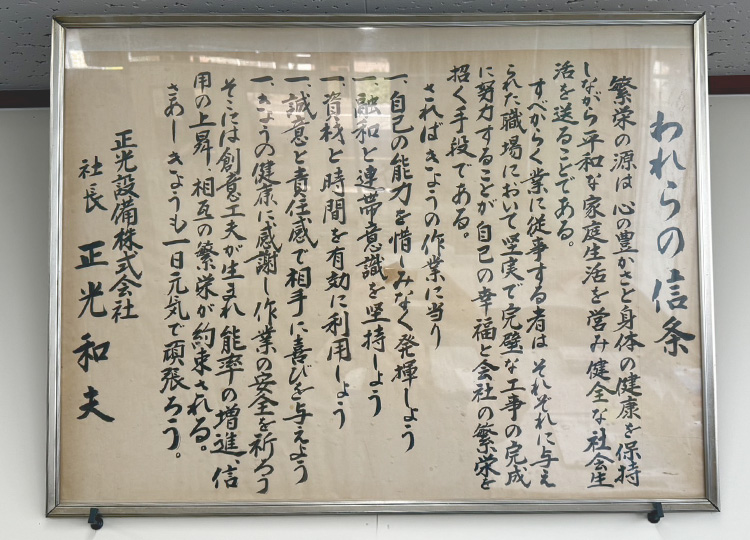 われらの信条
繁栄の源は 心の豊かさと身体の健康を保持
しながら平和な家庭生活を営み健全な社会生
活を送ることである。
すべからく業に従事する者は それぞれに与え
られた職場において堅実で完璧な工事の完成
に努力することが自己の幸福と会社の繁栄を
招く手段である。
さればきょうの作業に当り
一、自己の能力を惜しみなく発揮しょう
一、融和と連帯意識を堅持しよう
一、資材と時間を有効に利用しょう
一、誠意と責任感で相手に喜びを与えよう
一、きょうの健康に感謝し作業の安全を祈ろう
そこには創意工夫が生まれ 能率の増進、信
用の上昇、相互の繁栄が約束される。
さあーきょうも一日元気で頑張ろう。
正光設備株式会社
社長 正光和夫